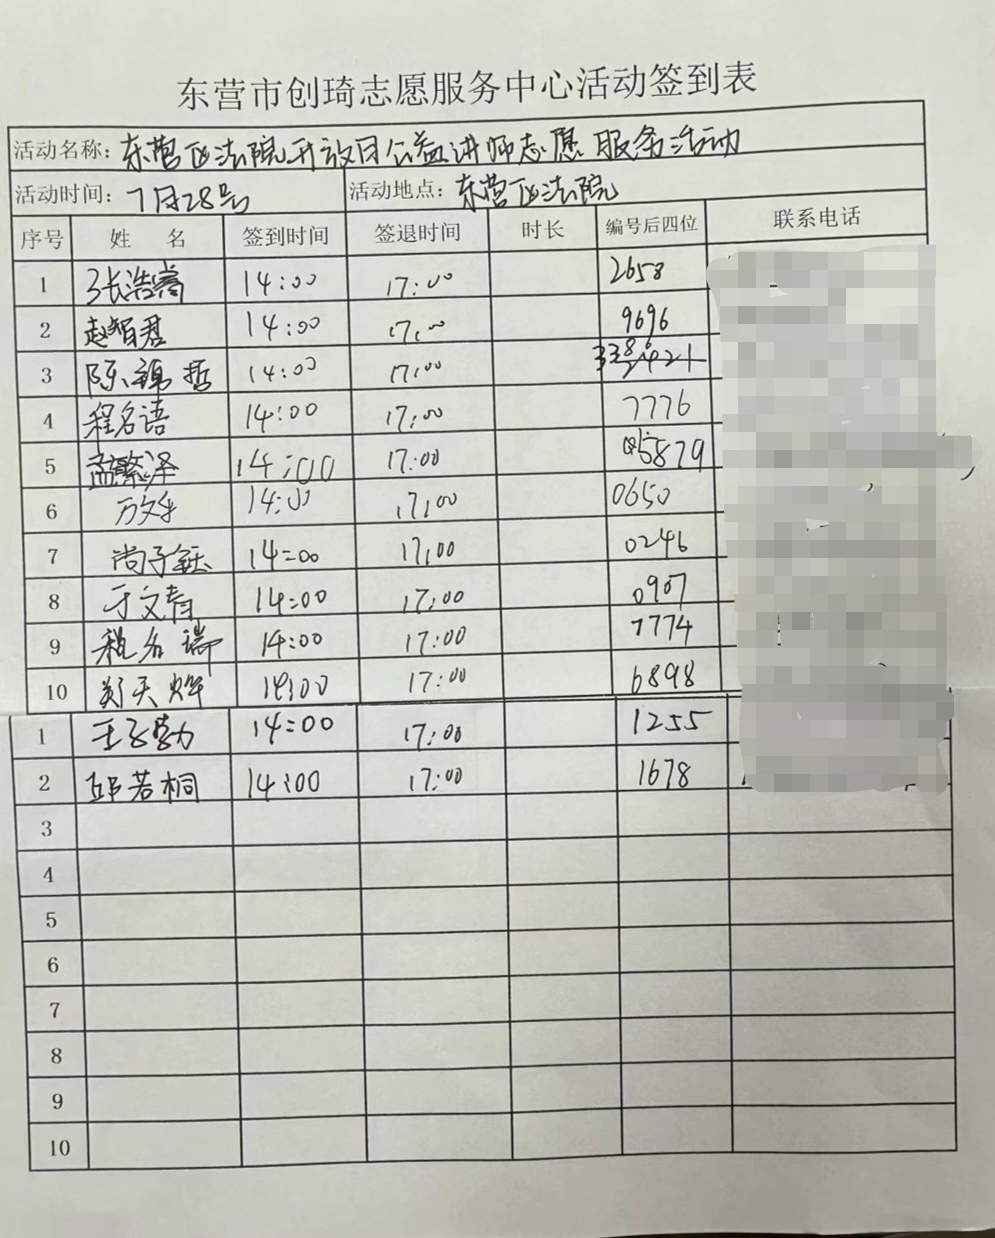 东营市创琦志愿服务中心活动签到表
活动名称: 东营区法院开放日公益讲师志愿服务活动
活动时间: 7月28号 活动地点: 东营区法院
序号 姓 名 签到时间 签退时间 时长 编号后四位 联系电话
1 张浩嵩 14:00 17:00 2658
2 赵智君 14:00 17:00 9696
3 陈锦哲 14:00 17:00
4 程名语 14:00 17:00 7776
5 孟繁泽 14:00 17:00 5879
6 14:00 17:00 0650
7 尚子钰 14:00 17:00 0246
8 于文青 14:00 17:00 0907
9 程名瑞 14:00 17:00 7774
10 郑天烨 14:00 17:00 6898
1 14:00 17:00 1255
2 邱若桐 14:00 17:00 1678
3
4
5
6
7
8
9
10